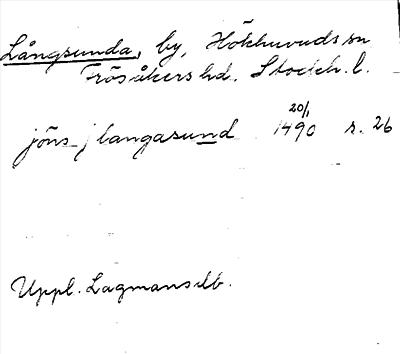 Långsunda, by, Hökhuvuds sn
Frösåkers hd. Stockh. l.
20/1
jöns j langasund 1490 s. 26
Uppl. Lagmansdb.